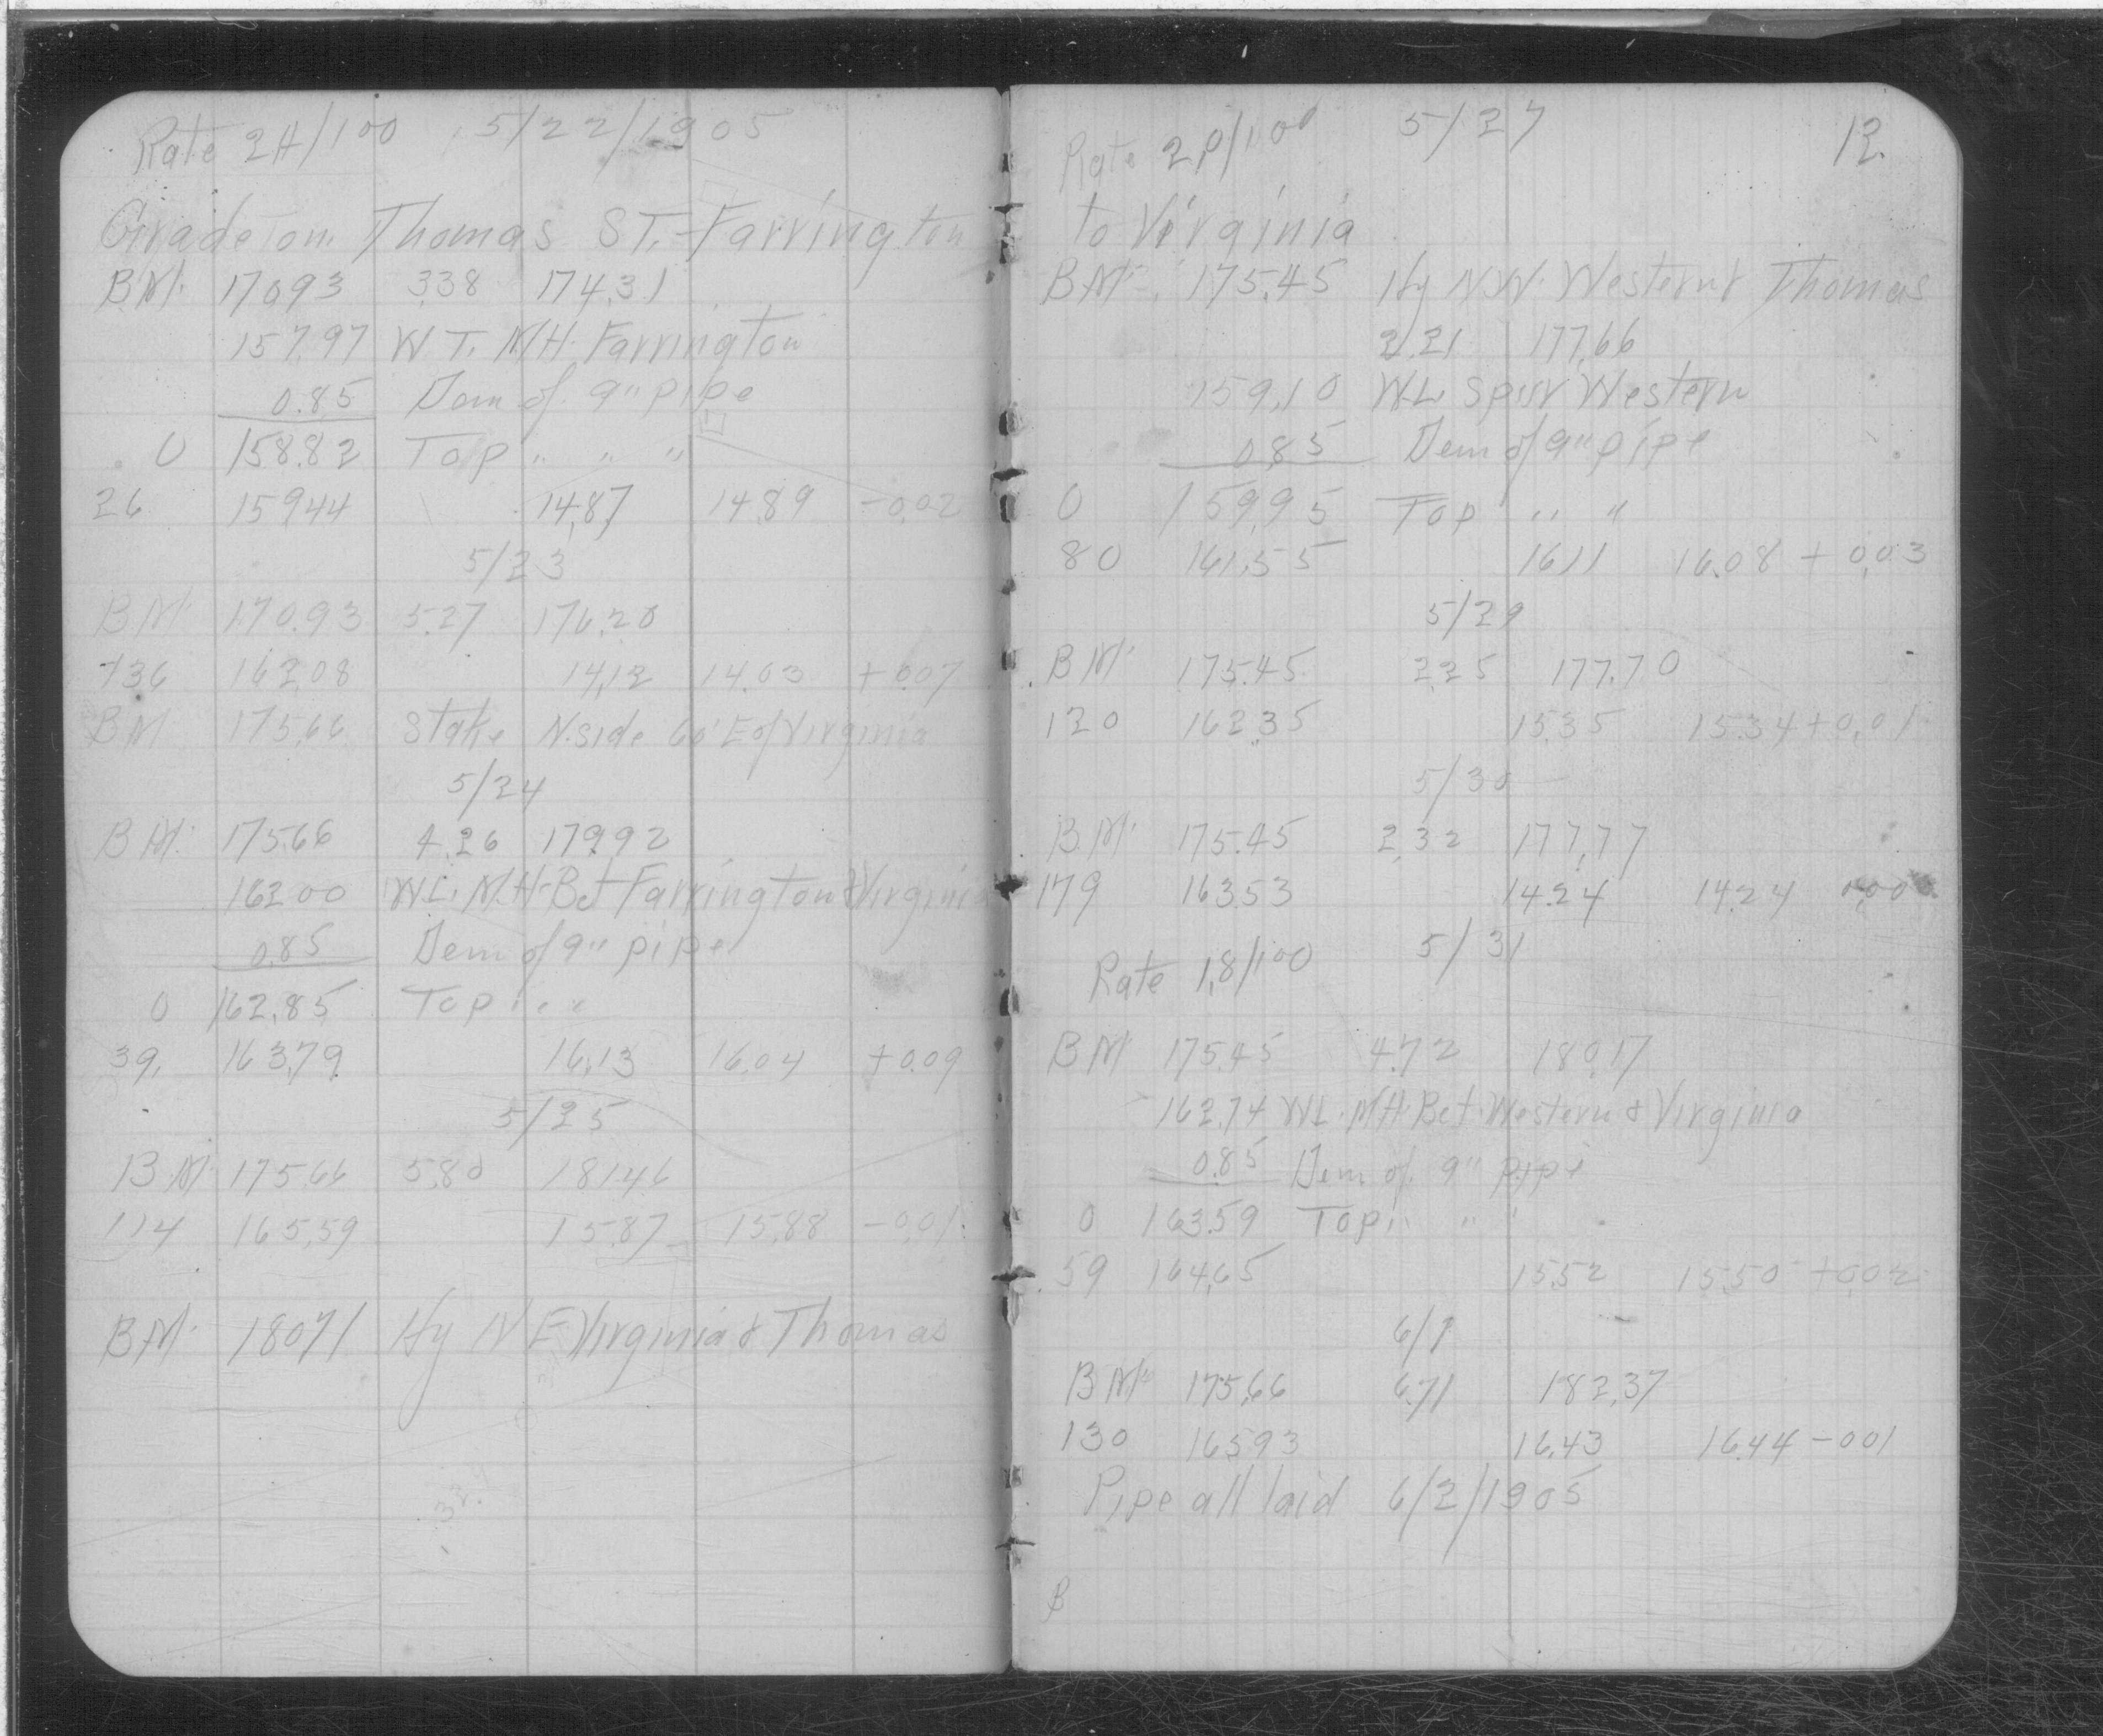 Rate 2.4/100 5/22/1905
Grade on Thomas ST.-Farrington
B.M. 170.93 3.38 174.31
157.97 W.T. M.H. Farrington
0.85 Dem of 9" pipe
0 158.82 Top " " "
26 159.44 14.87 14.89 -0.02
5/23
B.M. 170.93 5.27 176.20
136 162.08 14.12 14.03 +0.07
B.M. 175.66 Stake N. side 60' E of Virginia
5/24
B.M. 175.66 4.26 179.92
162.00 W.L. M.H. Bet Farrington & Virginia
0.85 Dem of 9" pipe
0 162.85 Top " "
39. 163.79 16.13 16.04 +0.09
5/25
B.M. 175.66 5.80 181.46
114 165.59 15.87 15.88 -0.01
B.M. 180.71 Hy N E Virginia & Thomas
Rate 2.0/100 5/27 12.
to Virginia
B.M. 175.45 Hy N.W. Western & Thomas
2.21 177.66
159.10 W.L. Spur Western
0.85 Dem of 9" pipe
0 159.95 Top " "
80 161.55 16.11 16.08 +0.03
5/29
B.M. 175.45 2.25 177.70
120 162.35 15.35 15.34 +0.01
5/30
B.M. 175.45 2.32 177.77
179 163.53 14.24 14.24 0.00
Rate 1.8/100 5/31
B.M. 175.45 4.72 180.17
162.74 W.L. M.H. Bet. Western & Virginia
0.85 Dem of 9" pipe
0 163.59 Top " " "
59 164.65 15.52 15.50 +0.02
6/1
B.M. 175.66 6.71 182.37
130 165.93 16.43 16.44 -0.01
Pipe all laid 6/2/1905
B